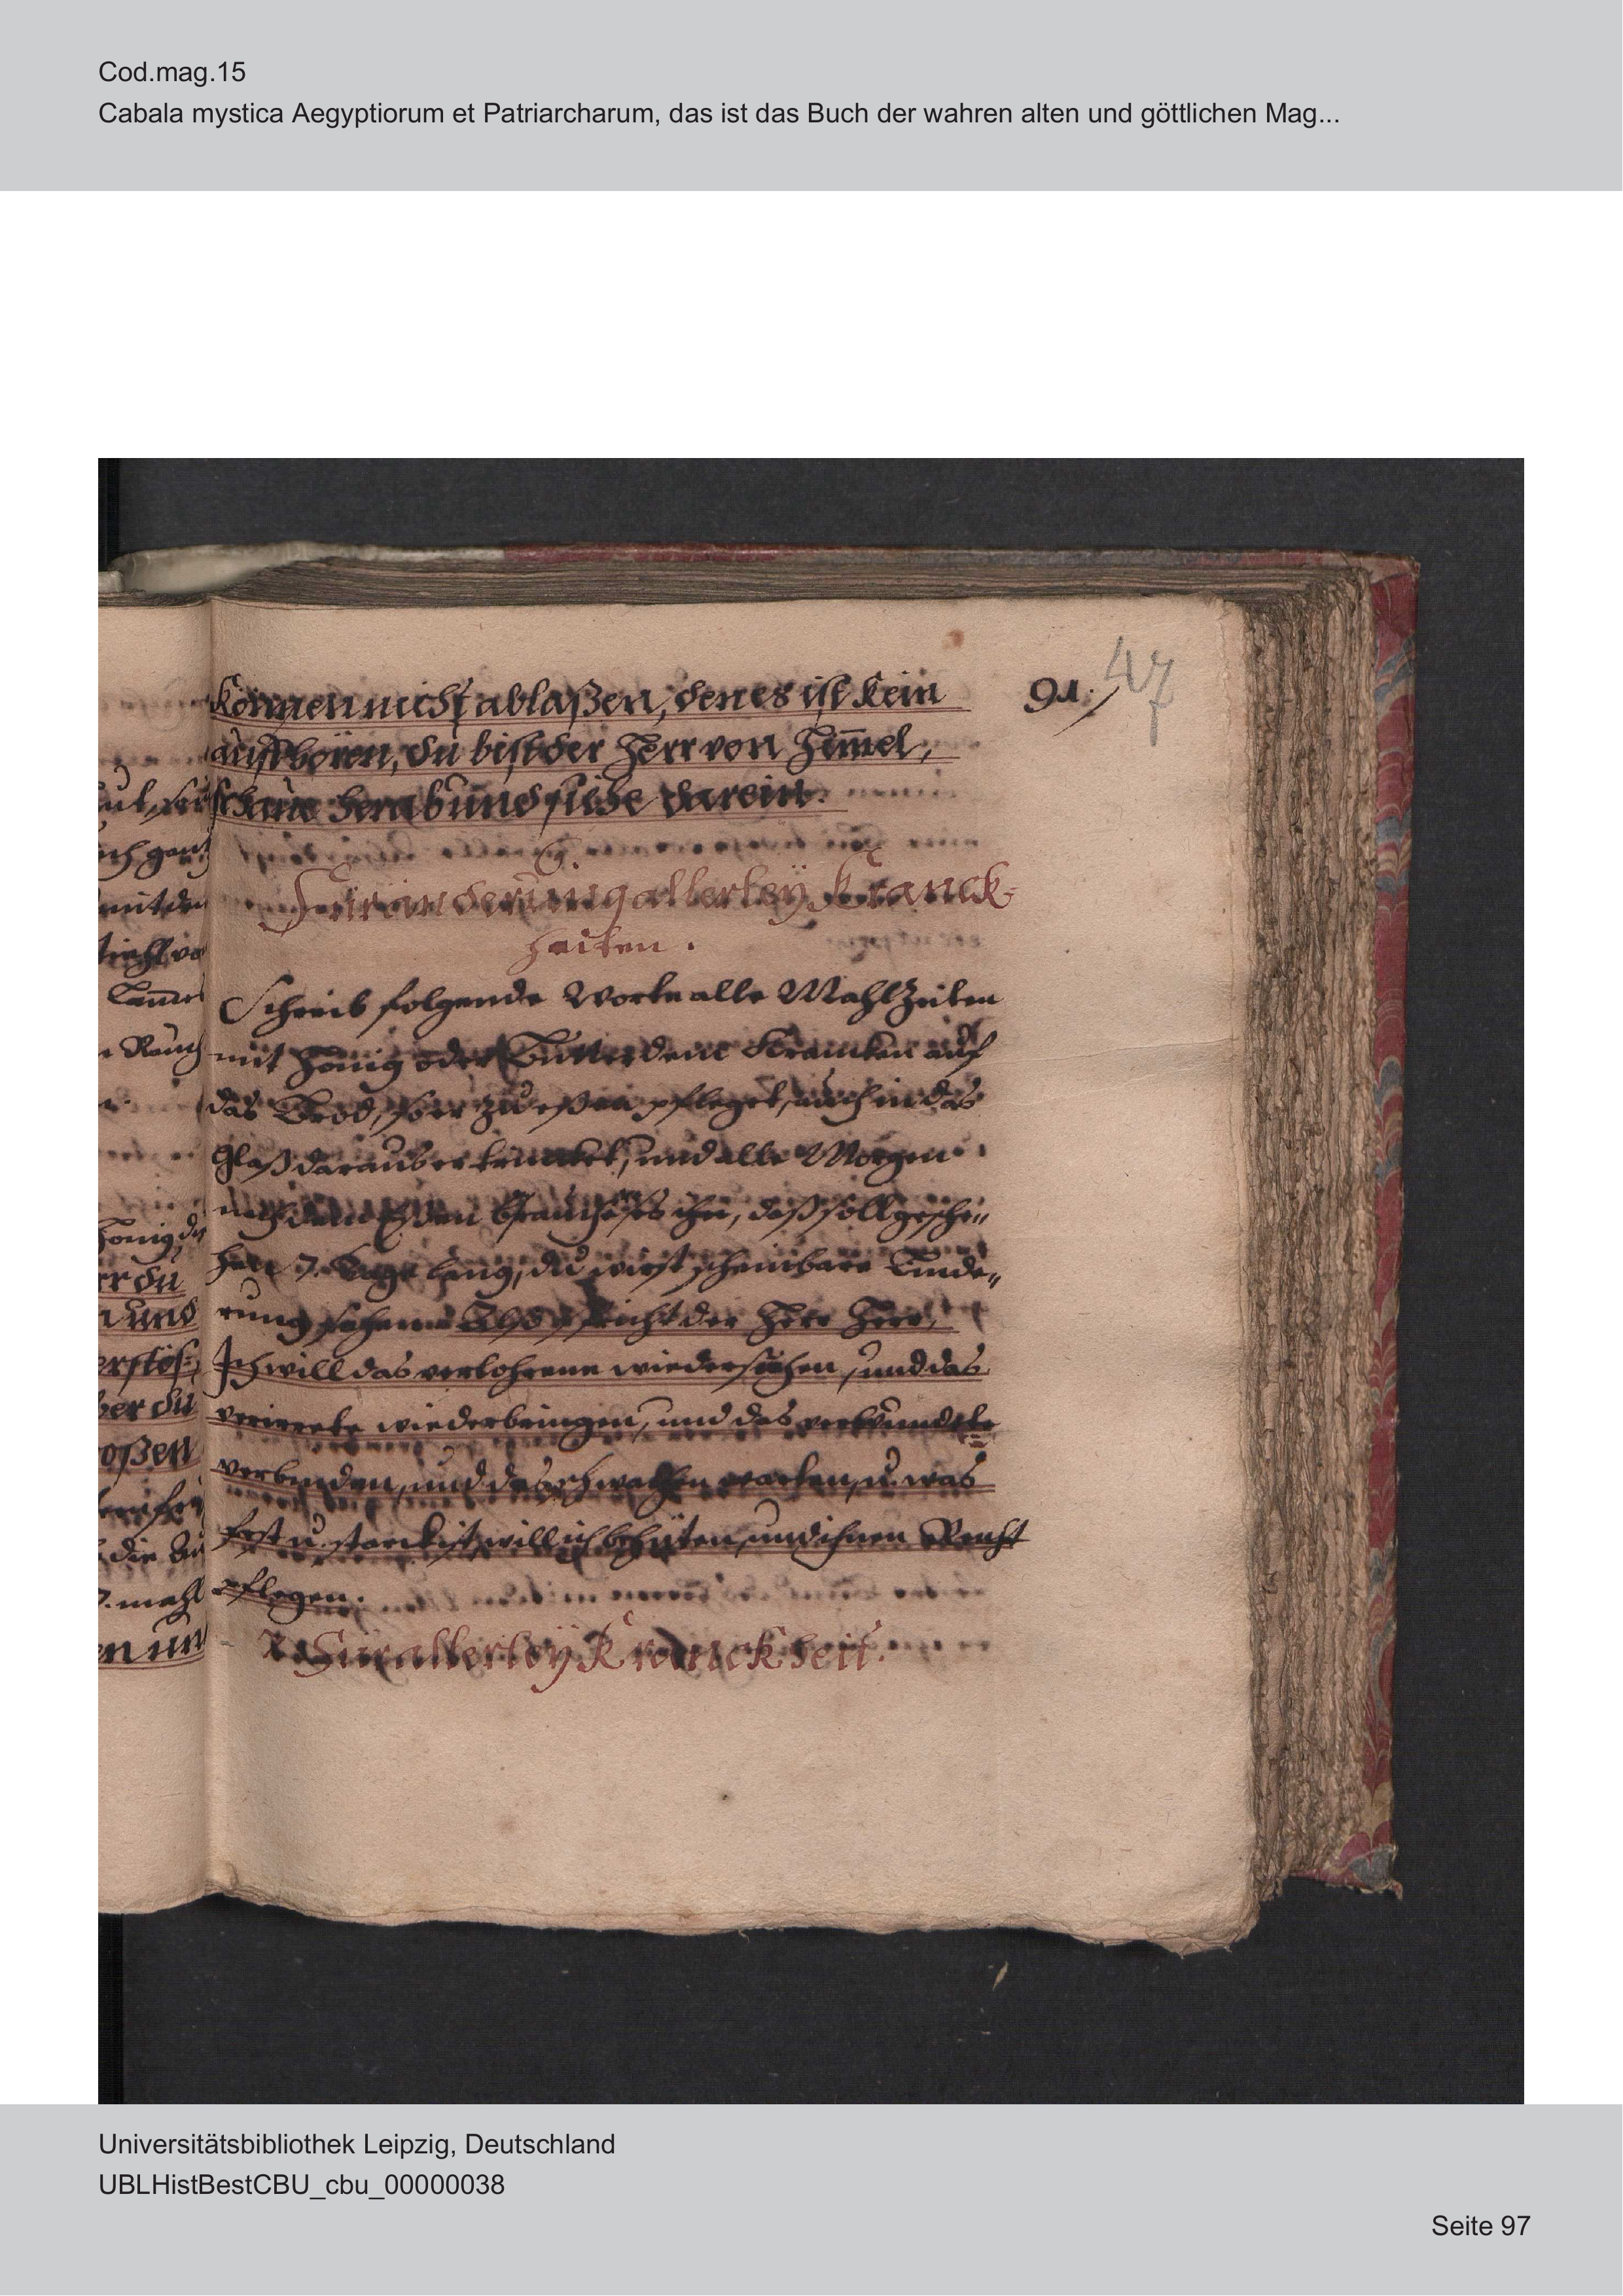 Cod.mag.15
Cabala mystica Aegyptiorum et Patriarcharum, das ist das Buch der wahren alten und göttlichen Mag...
91.
47
können nicht ablaßen, den es ist kein
auffhören, du bist der Herr von Him̄el,
schaue herab und siehe darein.
6.
Für änderung allerley Kranck-
heiten.
Schreib folgende Worte alle Mahlzeiten
mit Honig oder Butter dem Krancken auf
das Brod, so er zu eßen pfleget, auch in das
Glaß daraus er trincket, und alle Morgen
nach dem brauche es ihn, daß soll gesche„
hen 7. Tage lang, du wirst scheinbare Linde„
rung sehen. Also spricht der Herr Herr,
Ich will das verlohrene wieder suchen, und das
verirrete wiederbringen, und das verwundete
verbinden, und des schwachen warten, u. was
fest u. starck ist, will ich behüten, und ihnen Recht
pflegen.
7. Für allerley Kranckheit.
Universitätsbibliothek Leipzig, Deutschland
UBLHistBestCBU_cbu_00000038
Seite 97